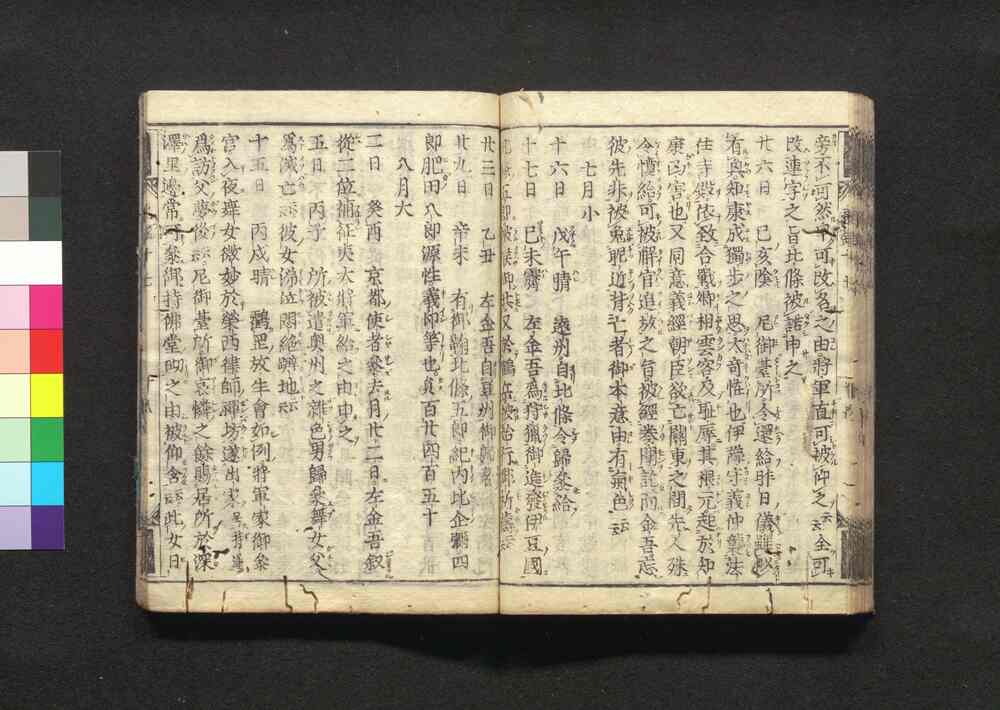 旁不可然早可改名之由將軍直可被仰之云云全可
改連字之旨比條被諾申之
廿六日 已亥陰 尼御臺所令還給昨日儀雖
有與知康成獨步之思太奇恠也伊豫守義仲襲法
住寺殿依致合戰卿相雲客及耻辱其根元起於知
康凶害也又同意義經朝臣欲亡關東之間先人殊
令憤給可被解官追放之旨被經奏聞訖而金吾忘
彼先非被免昵近背亡者御本意由有氣色云云
七月小
十六日 戊午晴 遠州自北條令歸參給
十七日 已未霽 左金吾爲狩獵御進發伊豆國
廿三日 乙丑 左金吾自豆州御歸
廿九日 辛未 有御鞠北條五郎紀内比企彌四
郎肥田八郎源性義印等也員百廿四百五十
八月大
二日 癸酉 京都使者參去月廿二日左金吾叙
從二位補征夷大將軍給之由申之
五日 丙子 所被遣奥州之雜色男歸參舞女父
爲滅亡云云彼女涕泣悶絶躃地云云
十五日 丙戌晴 鶴罡放生會如例將軍家御參
宮入夜舞女微妙於榮西律師禪坊遂出家
爲訪父夢後云云尼御臺所御哀憐之餘賜居所於深
澤里邊常可參御持佛堂砌之由被仰含云云此女日